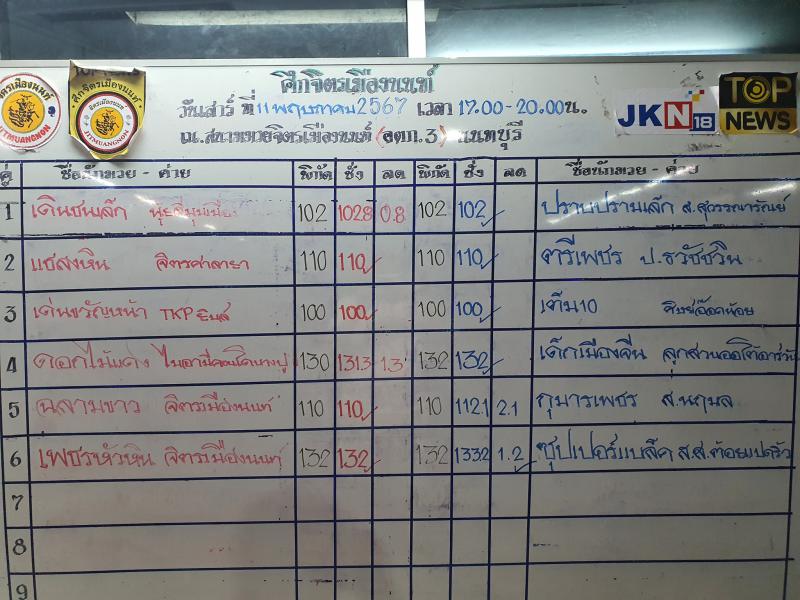 ศึกจิตรเมืองนนท์
วันเสาร์ ที่ 11 พฤษภาคม 2567 เวลา 17.00-20.00 น.
ณ.สนามมวยจิตรเมืองนนท์ (อตก.3) นนทบุรี
JKN18
TOP NEWS
JITMUANGNON
คู่ ชื่อนักมวย - ค่าย พิกัด ชั่ง ลด พิกัด ชั่ง ลด ชื่อนักมวย - ค่าย
1 102 102.8 0.8 102 102 ปราบปรามเล็ก ส.สุวรรณารัณย์
2 แสงหิน จิตรศาลายา 110 110 110 110 ตรีเพชร ป.ธวัชชวิน
3 เด่นขวัญหน้า TKP ยิมส์ 100 100 100 100 เต็ม10 ศิษย์อ๊อดน้อย
4 ดอกไม้แดง 130 131.3 1.3 132 132 เด็กเมืองจีน
5 ฉลามขาว จิตรเมืองนนท์ 110 110 110 112.1 2.1 กุมารเพชร ส.นฤมล
6 เพชรหัวหิน จิตรเมืองนนท์ 132 132 132 133.2 1.2 ซุปเปอร์แบล็ค ส.ส.ต้อยแปดริ้ว
7
8
9